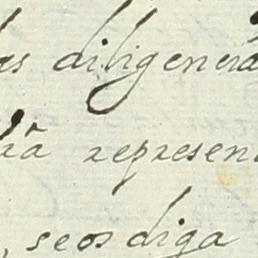 las diligencia
represen
, seos diga